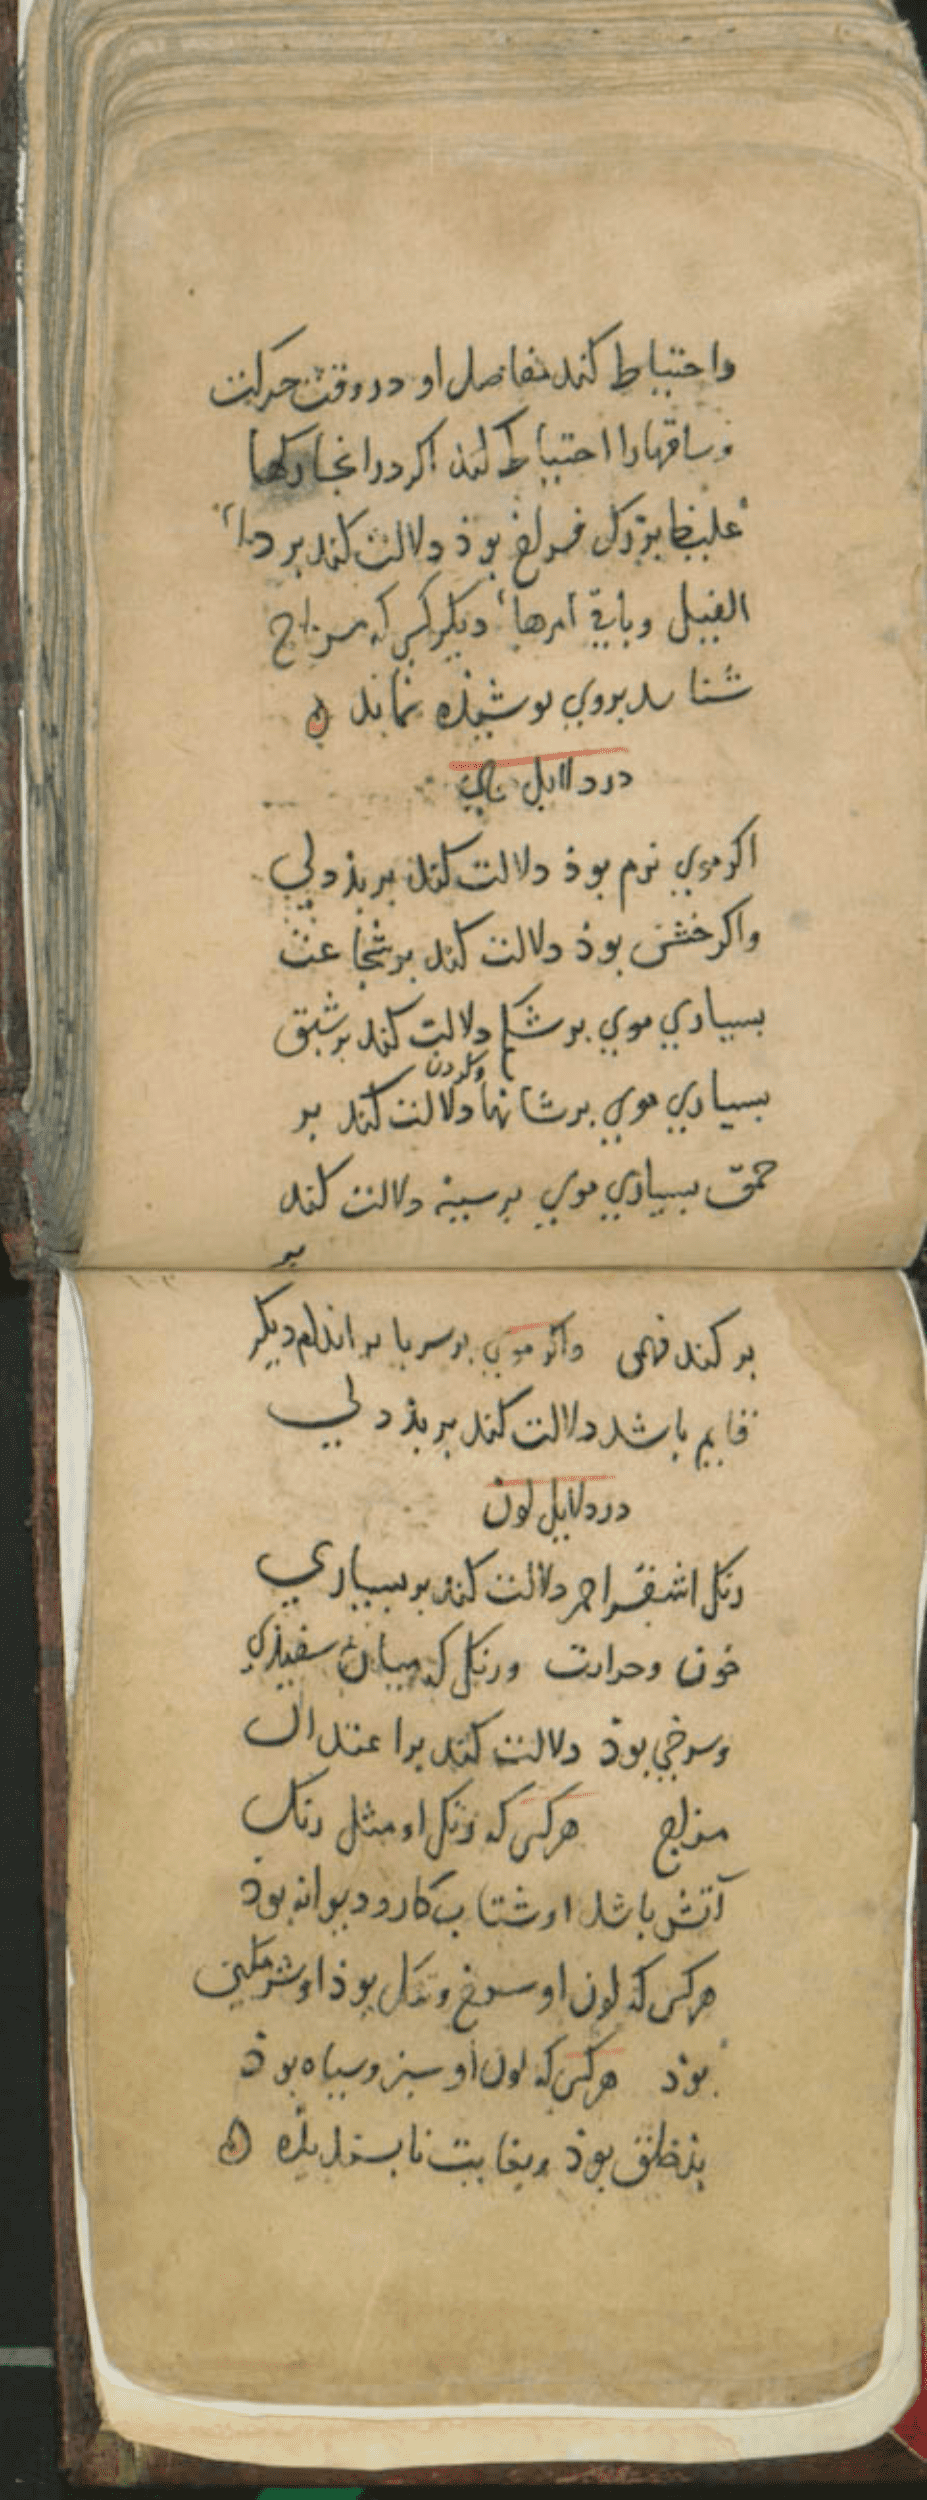 واحتیاط کند مفاصل او در وقت حرکت
وساقهارا احتیاط کند اکر در انجا رکها
غلیظ بزرک فراخ بوذ دلالت کند بر داء
الفیل وباقی امرها دیکر کس که مزاج
شناسد بروی بوشیذه نماند
در دلایل موی
اکر موی نرم بوذ دلالت کند بر بذدلی
واکر خشن بوذ دلالت کند بر شجاعت
بسیاری موی بر شکم دلالت کند بر شبق
بسیاری موی بر شانها وکردن دلالت کند بر
حمق بسیاری موی بر سینه دلالت کند
بر
بر کند فهمی واکر موی بر سر یا بر اندام دیکر
قایم باشد دلالت کند بر بذدلی
در دلایل لون
رنک اشقر احمر دلالت کند بر بسیاری
خون وحرارت ورنک که میان سفیذی
وسرخی بوذ دلالت کند بر اعتدال
مزاج هر کس که رنک او مثل رنک
آتش باشد او شتاب کار ودیوانه بوذ
هر کس که لون او سرخ وتنک بوذ او شرمکین
بوذ هر کس که لون او سبز وسیاه بوذ
بذخلق بوذ وبغایت نابسندیذه